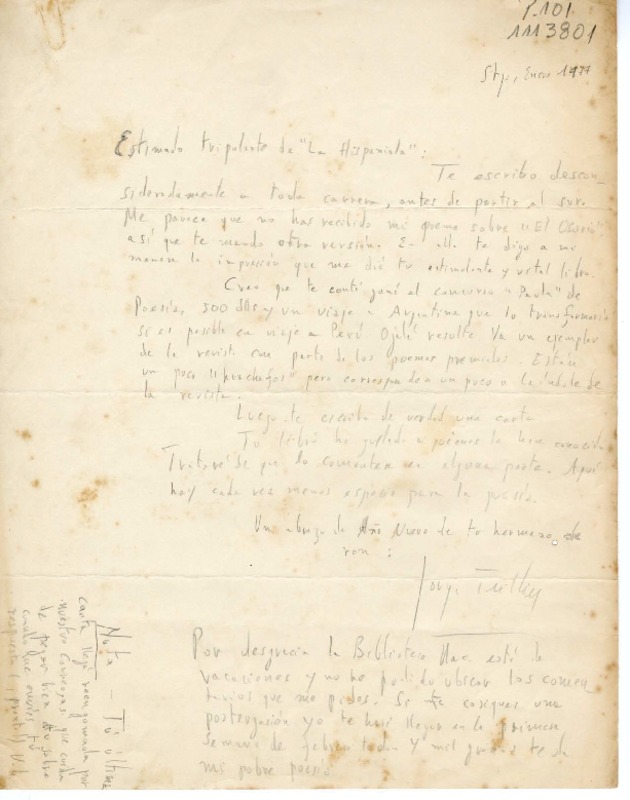 P.101
1113801
Stgo, Enero 1977
Estimado tripulante de "La Hispaniola":
Te escribo descon_
sideradamente a toda carrera, antes de partir al sur.
Me parece que no has recibido mi poema sobre "El Osario",
así que te mando otra versión. En ella te digo a mi
manera la impresión que me dió tu estimulante y vital libro.
Creo que te conté gané el concurso "Paula" de
Poesía, 500 dls y un viaje a Argentina que lo transformaría
si es posible en viaje a Perú Ojalá resulte Va un ejemplar
de la revista con parte de los poemas premiados. Están
un poco "huachafos" pero corresponden un poco a la índole de
la revista.
Luego te escribo de verdad una carta
Tu libro ha gustado a quienes lo han conocido
Trataré de que lo comenten en alguna parte. Aquí
hay cada vez menos espacio para la poesía.
Un abrazo de Año Nuevo de tu hermano de
ron:
Jorge Teillier
Por desgracia la Biblioteca Nac. está de
vacaciones y no he podido ubicar los comen
tarios que me pides. Si consigues una
postergación yo te haré llegar en la primera
semana de febrero todo y mil gracias te da
mi pobre poesía
Nota - Tu última
carta llegó por
nuestro que cuida
de pegar bien tu sobre
cuando que envíes tu
respuesta